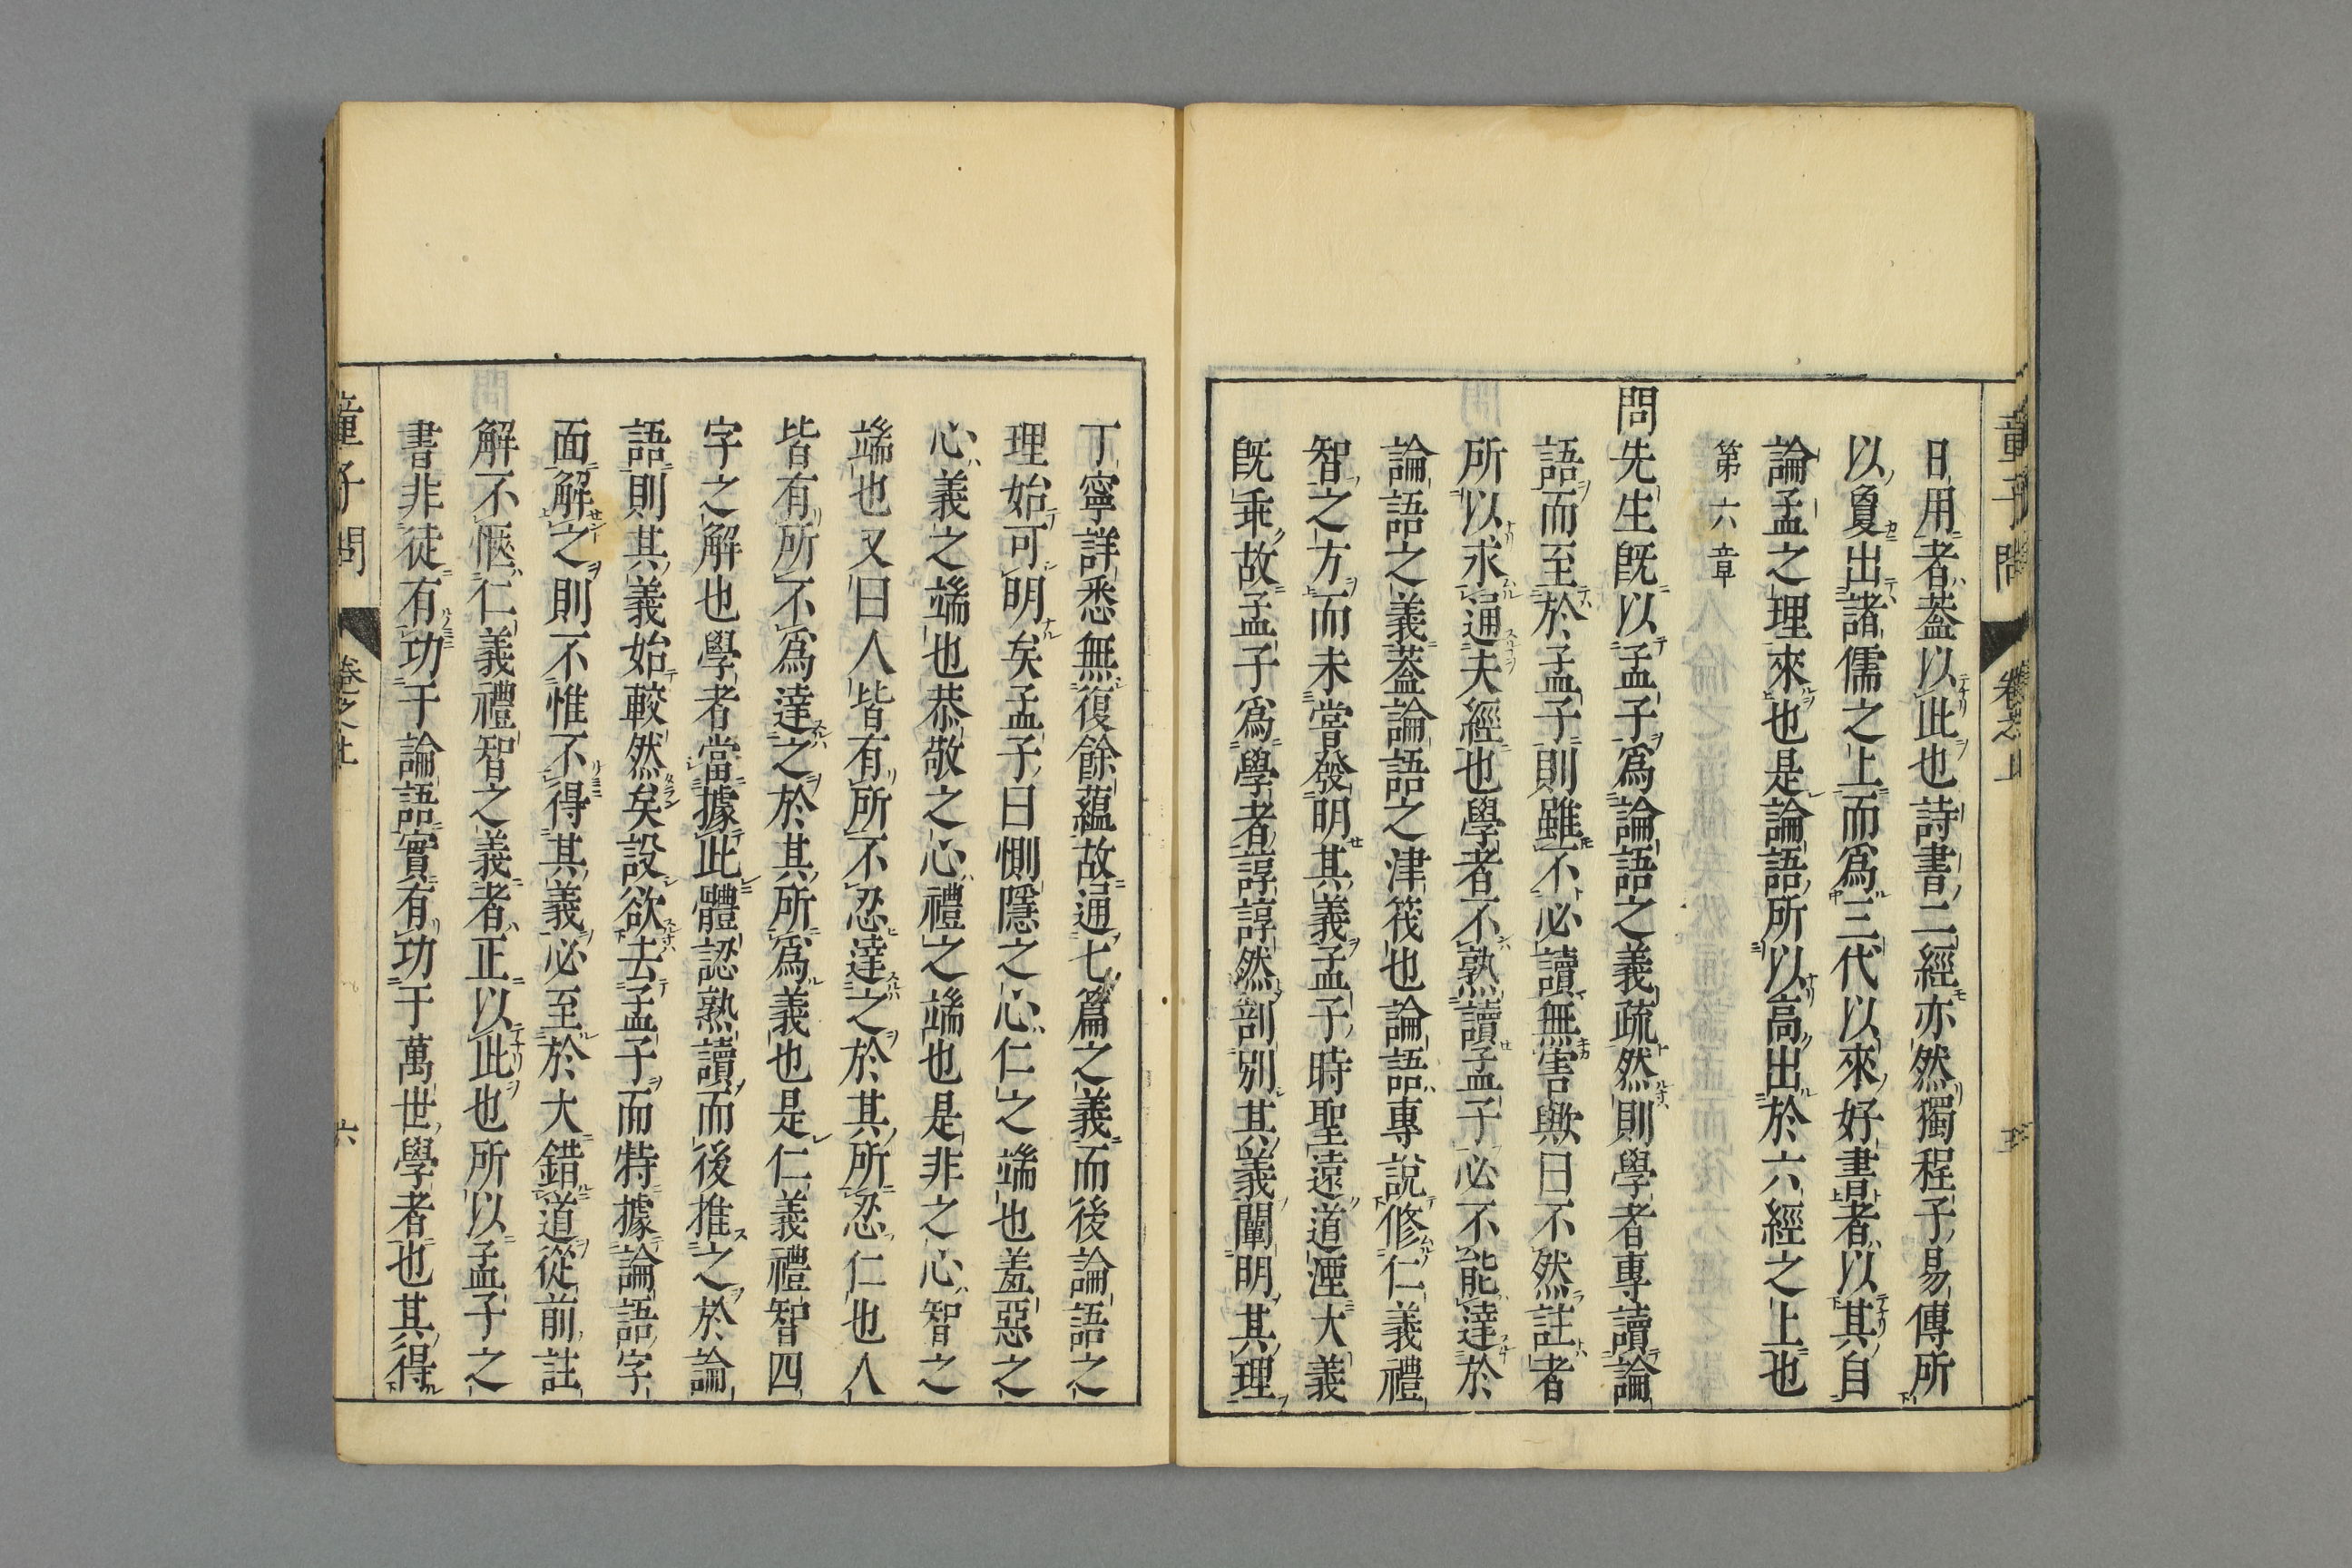 童子問 卷之上 五
日用者蓋以此也詩書二經亦然獨程子易傳所
以敻出諸儒之上而爲三代以來好書者以其自
論孟之理來也是論語所以高出於六經之上也
第六章
問先生旣以孟子爲論語之義疏然則學者專讀論
語而至於孟子則雖不必讀無害歟曰不然註者
所以求通夫經也學者不熟讀孟子必不能達於
論語之義蓋論語之津筏也論語專說修仁義禮
智之方而未嘗發明其義孟子時聖遠道湮大義
旣乖故孟子爲學者諄諄然剖別其義闡明其理
丁寧詳悉無復餘蘊故通七篇之義而後論語之
理始可明矣孟子曰惻隱之心仁之端也羞惡之
心義之端也恭敬之心禮之端也是非之心智之
端也又曰人皆有所不忍達之於其所忍仁也人
皆有所不爲達之於其所爲義也是仁義禮智四
字之解也學者當據此體認熟讀而後推之於論
語則其義始較然矣設欲去孟子而特據論語字
面解之則不惟不得其義必至於大錯道從前註
解不愜仁義禮智之義者正以此也所以孟子之
書非徒有功于論語實有功于萬世學者也其得
童子問 卷之上 六